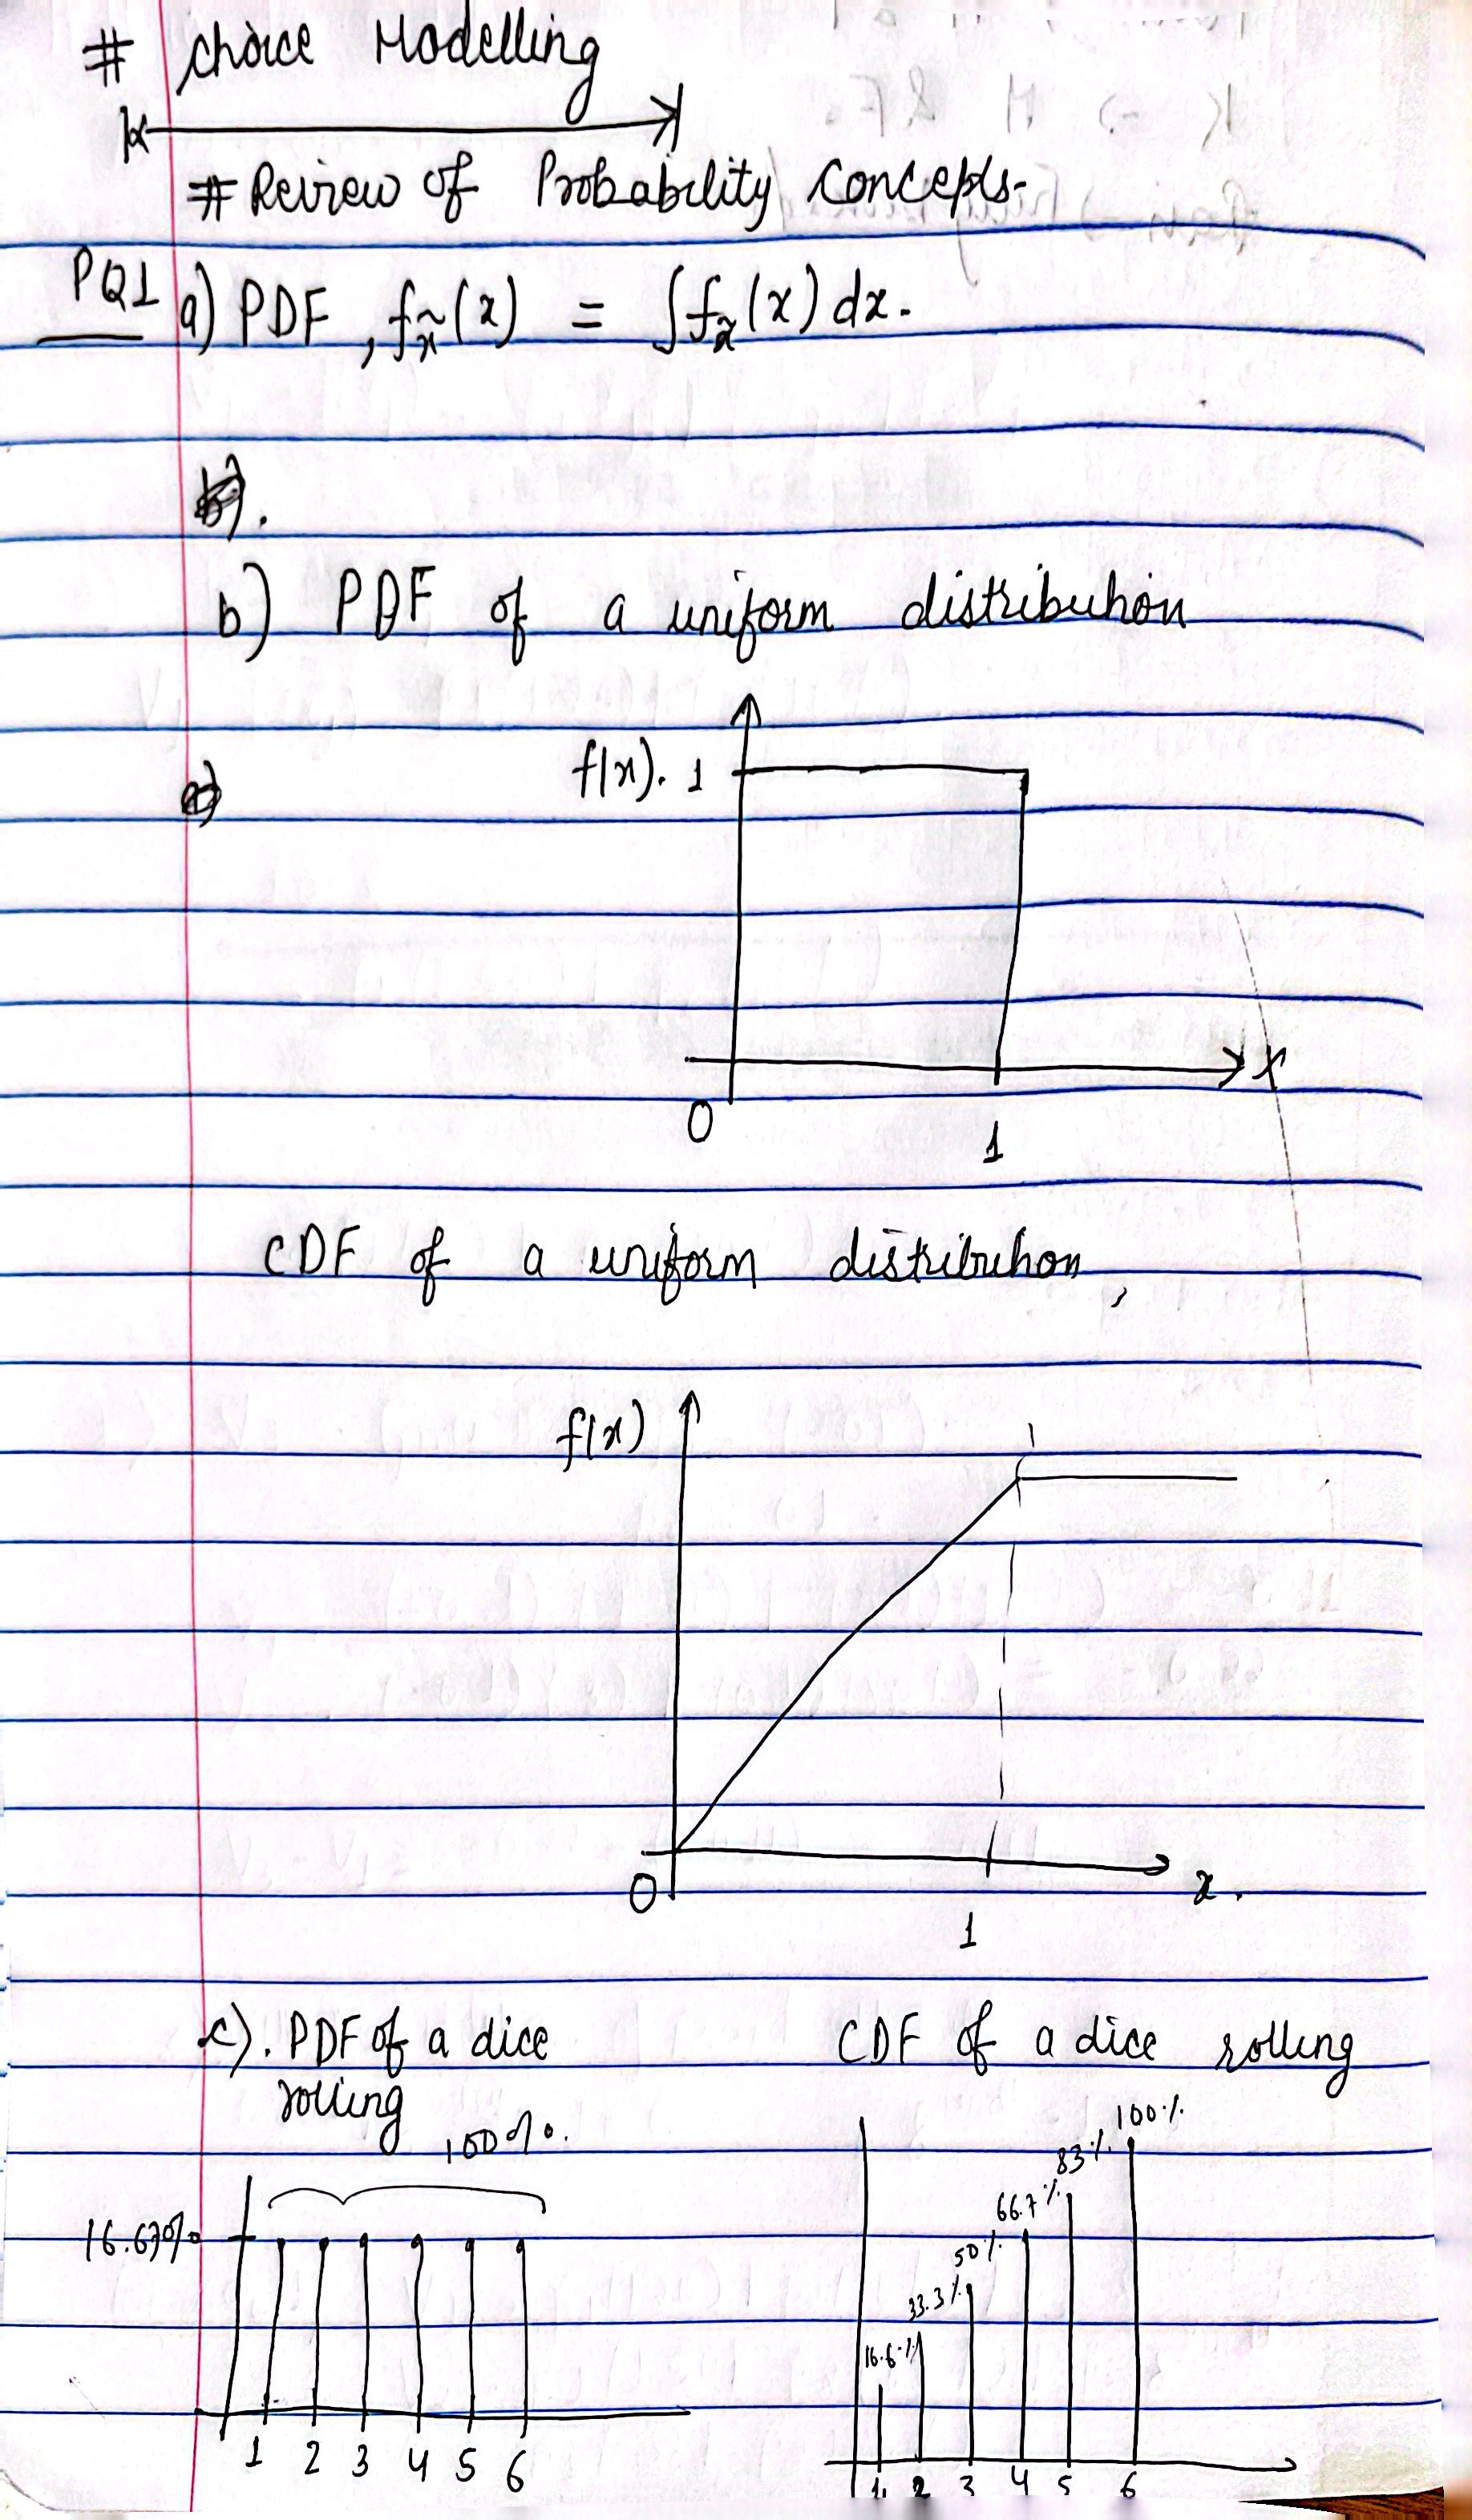 # Choice Modelling
# Review of Probability Concepts-
PQ1 a) PDF, fx̃(x) = ∫fx̃(x) dx.
b) PDF of a uniform distribution
f(x). 1
x
0
1
CDF of a uniform distribution,
f(x)
1
0
x.
1
c). PDF of a dice
rolling
100%.
16.67%
1 2 3 4 5 6
CDF of a dice rolling
100%
83%
66.7%
50%
33.3%
16.6%
1 2 3 4 5 6